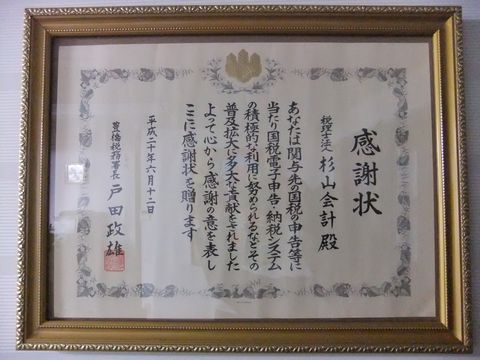 感謝状
税理士法人 杉山会計 殿
あなたは関与先の国税の申告等に
当たり国税電子申告・納税システム
の積極的な利用に努められるなどその
普及拡大に多大な貢献をされました
よって心から感謝の意を表し
ここに感謝状を贈ります
平成二十年六月十二日
豊橋税務署長 戸田政雄